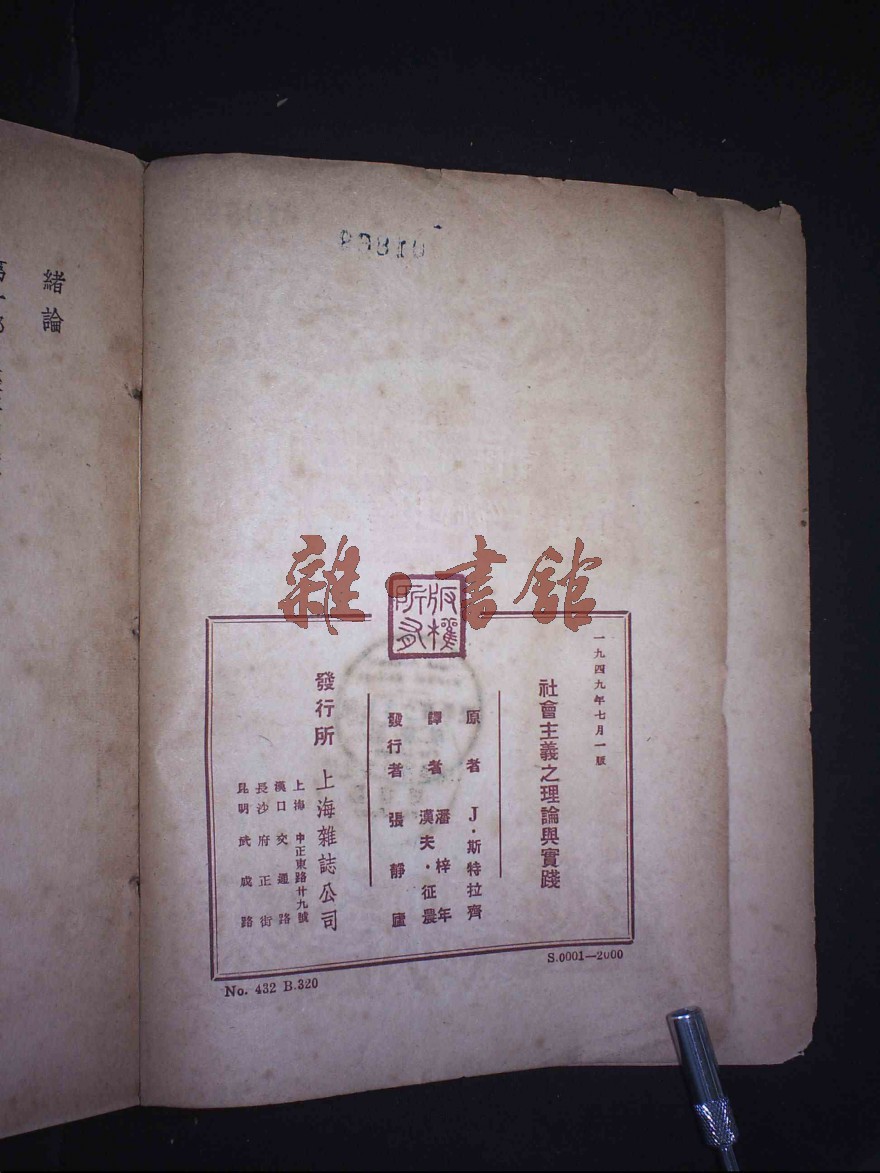 83810
雜·書館
版權所有
一九四九年七月一版
社會主義之理論與實踐
原者 J·斯特拉齊
譯者 潘梓年
漢夫·征農
發行者 張靜廬
發行所 上海雜誌公司
上海 中正東路廿九號
漢口 交通路
長沙 府正街
昆明 武成路
S.0001—2000
No. 432 B.320
緒論